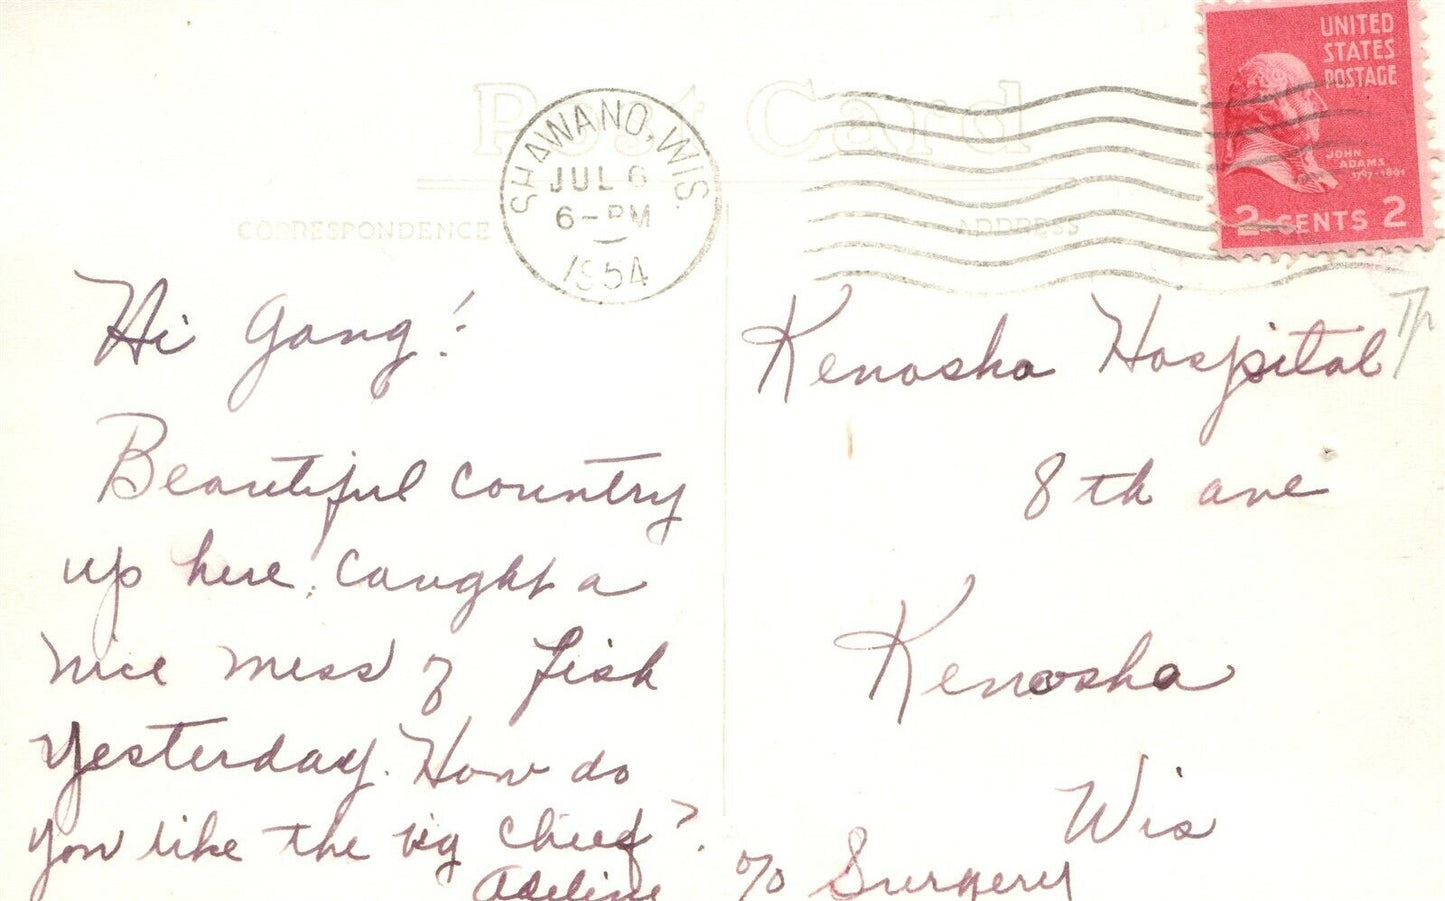 UNITED
STATES
POSTAGE
JOHN
ADAMS
1797-1801
2 CENTS 2
Post Card
SHAWANO, WIS.
JUL 6
6-PM
1954
CORRESPONDENCE
ADDRESS
Hi Gang!
Beautiful country
up here. Caught a
nice mess of fish
Yesterday. How do
you like the big chief?
Adeline
Kenosha Hospital
8th ave
Kenosha
Wis
c/o Surgery